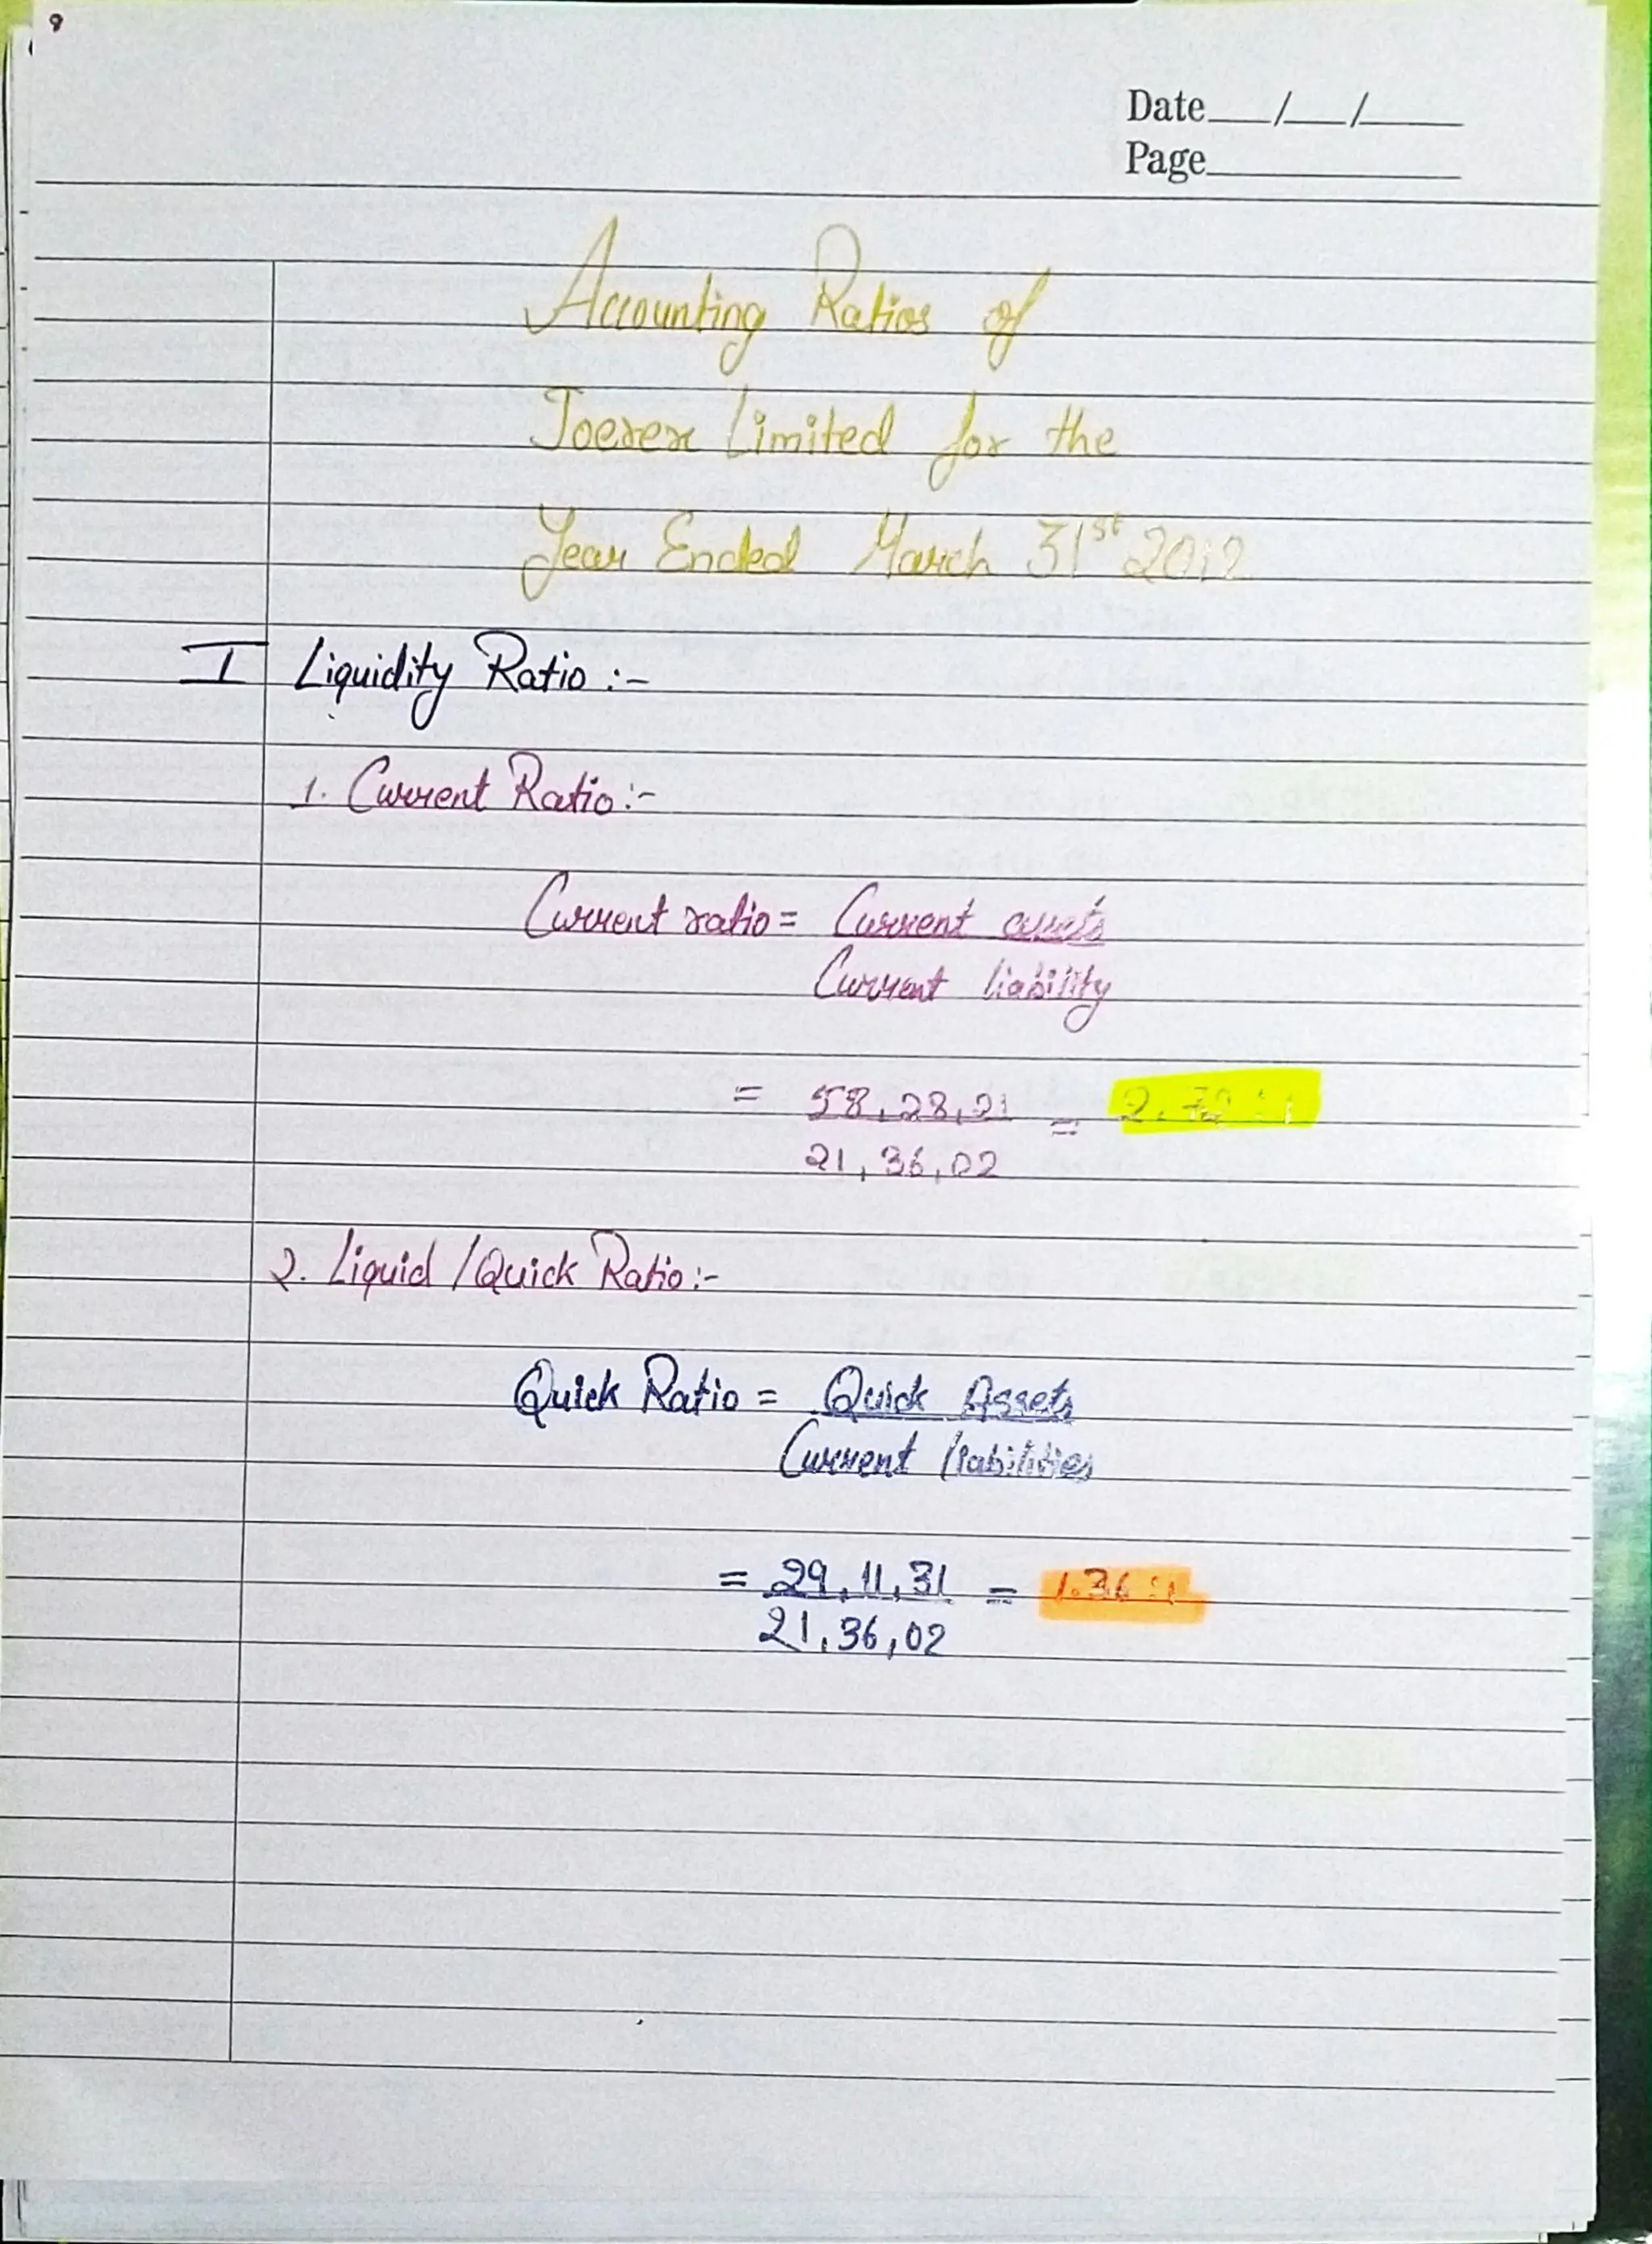 9
Date___/___/_____
Page____________
Accounting Ratios of
Joerex Limited for the
Year Ended March 31st 2012
I Liquidity Ratio :-
1. Current Ratio :-
Current ratio = Current assets
Current liability
= 58,28,21 = 2.72 : 1
21,36,02
2. Liquid / Quick Ratio :-
Quick Ratio = Quick Assets
Current liabilities
= 29,11,31 = 1.36 : 1
21,36,02